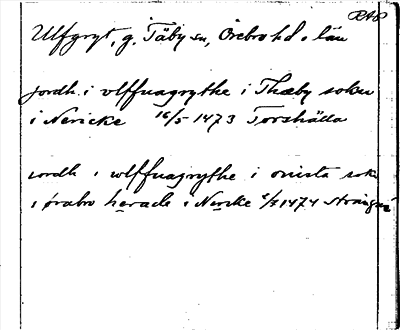 RAÖ
Ulfgryt, g. Täby sn, Örebro hd o län
jordh i vlffuagrythe i Thæby sokn
i Nericke 16/5 1473 Torshälla
jordh i wlffuagrythe i onista sokn
i ørabro herade i Nericke 1474 Strängnäs